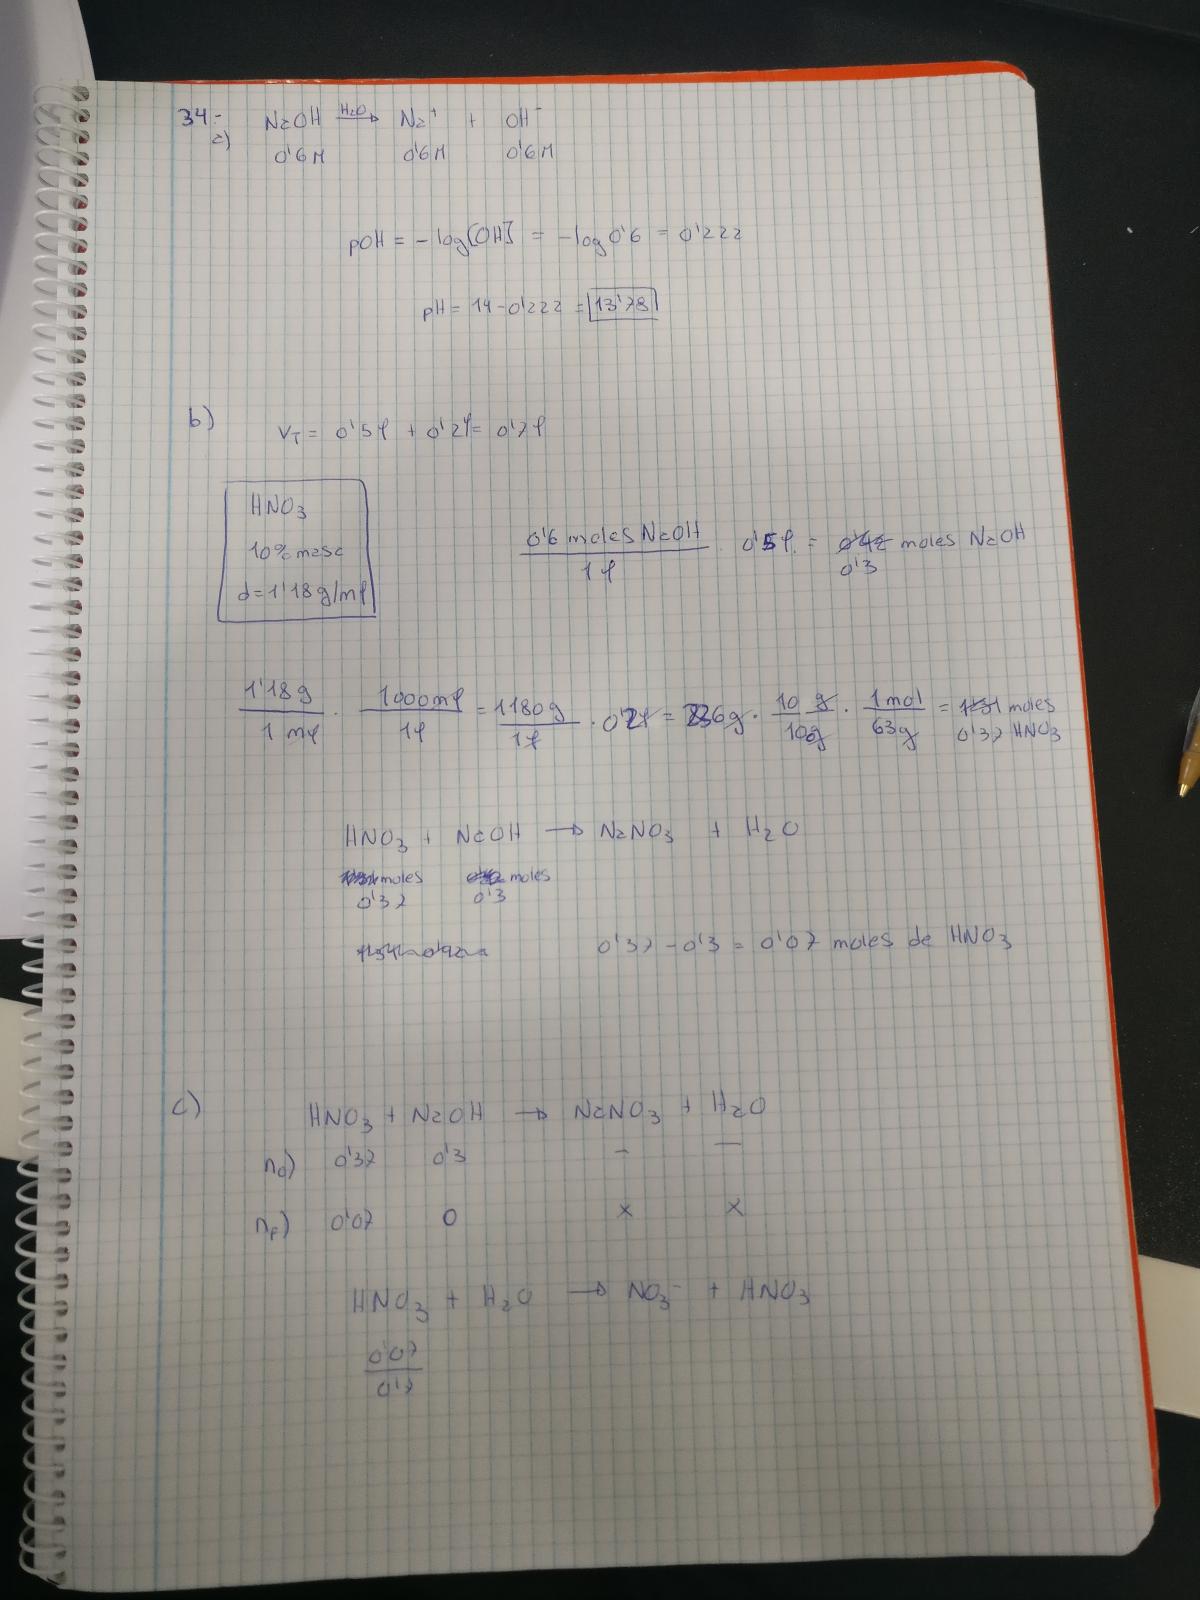 34.- NaOH H2O→ Na⁺ + OH⁻
a) 0'6M 0'6M 0'6M
pOH = -log[OH⁻] = -log0'6 = 0'222
pH = 14-0'222 = 13'78
b) VT = 0'5l + 0'2l = 0'7l
HNO3
10% masa
d=1'18g/ml
0'6 moles NaOH / 1l · 0'5l = 0'3 moles NaOH
1'18g / 1ml · 1000ml / 1l = 1180g / 1l · 0'2l = 236g · 10g / 100g · 1mol / 63g = 0'37 moles HNO3
HNO3 + NaOH → NaNO3 + H2O
moles moles
0'37 0'3
0'37-0'3 = 0'07 moles de HNO3
c) HNO3 + NaOH → NaNO3 + H2O
n0) 0'37 0'3 - -
nf) 0'07 0 x x
HNO3 + H2O → NO3⁻ + HNO3
0'07
0'7